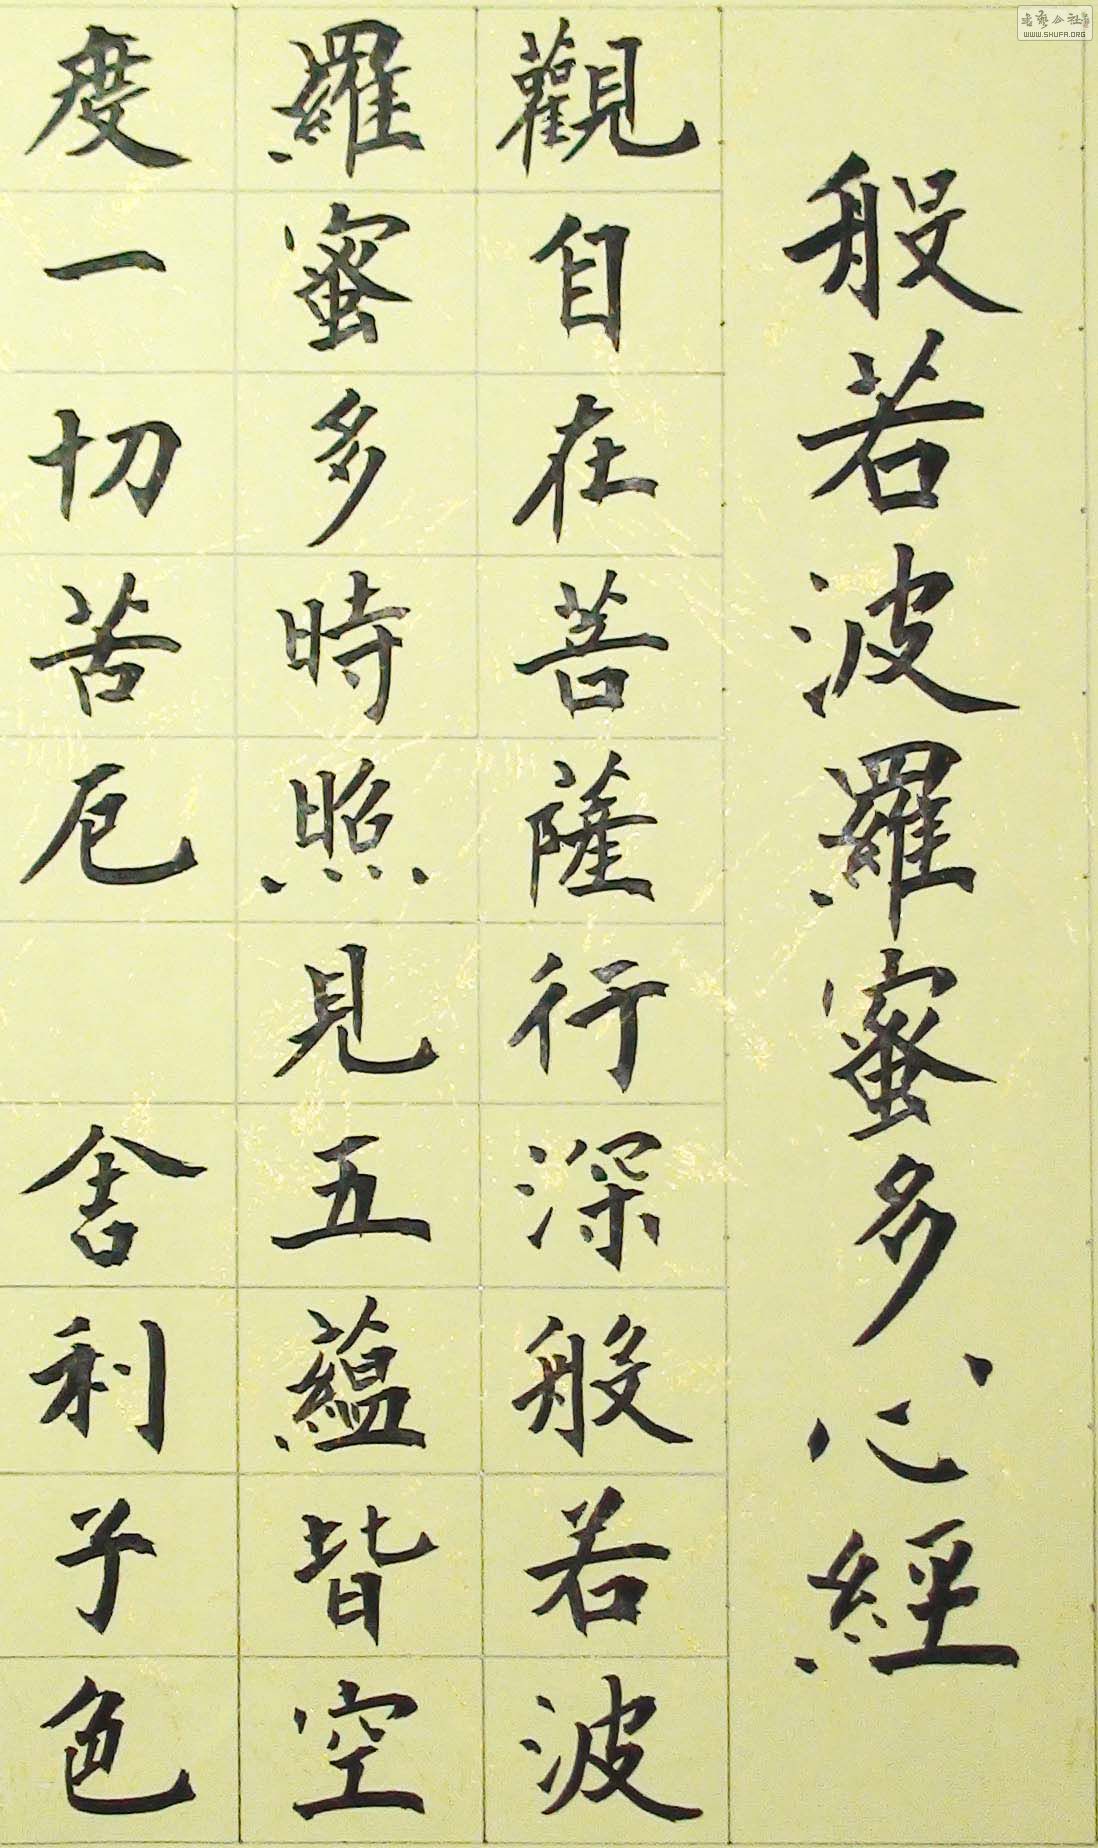 般若波羅蜜多心經
觀自在菩薩行深般若波
羅蜜多時照見五蘊皆空
度一切苦厄 舍利子色
WWW.SHUFA.ORG